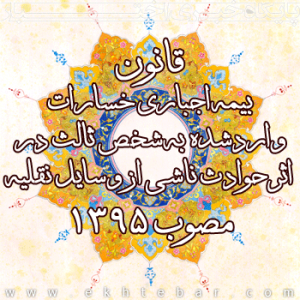 قانون
بیمه اجباری خسارات
وارد شده به شخص ثالث در
اثر حوادث ناشی از وسایل نقلیه
مصوب ۱۳۹۵
www.ekhtebar.com